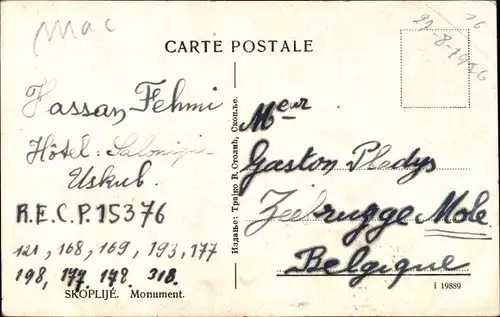 Mac
16
21-8-1926
CARTE POSTALE
Hassan Fehmi
Hôtel: Salonique
Uskub.
R.E.C.P. 15376
121, 168, 169, 193, 177
198, 177, 178, 318.
SKOPLIJÉ. Monument.
Издање: Трајко В. Столић, Скопље.
Meur
Gaston Pladys
Zeebrugge Mole
Belgique
i 19889